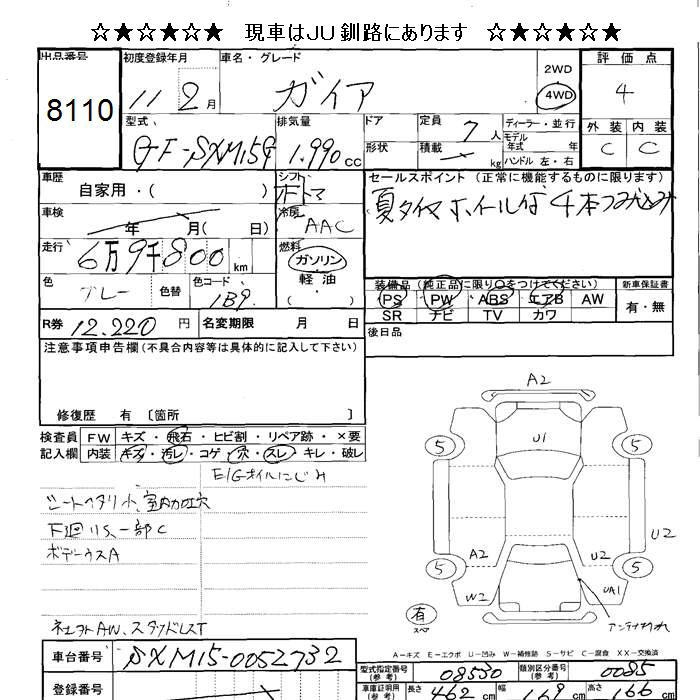 ☆★☆★☆★ 現車はJU釧路にあります ☆★☆★☆★
出品番号
8110
初度登録年月
11 2月
車名・グレード
ガイア
2WD
4WD
評価点
4
外装 内装
C C
型式
GF-SXM15G
排気量
1.990cc
ドア
形状
定員 7人
積載 kg
ディーラー・並行
モデル年式 年
ハンドル 左・右
車歴
自家用・( )
シフト
冷房
AAC
セールスポイント (正常に機能するものに限ります)
夏タイヤホイール付 4本つみ込み
車検
年 月( 日)
走行
6万9千800km
燃料
ガソリン
軽油
( )
色
グレー
色替
色コード
1B9
装備品(純正品に限り○をつけてください)
PS PW ABS エアB AW
SR ナビ TV カワ
新車保証書
有・無
R券 12.220円
名変期限 月 日
後日品
注意事項申告欄(不具合内容等は具体的に記入して下さい)
修復歴 有〔箇所 〕
検査員記入欄
FW キズ・飛石・ヒビ割・リペア跡・×要
内装 キズ・汚レ・コゲ・穴・スレ・キレ・破レ
E/Gオイルにじみ
シートヘタリ小、室内加工穴
下廻りS、一部C
ボデーウスA
AW、スタッドレスT
A2
U1
5 5
U2
A2 U2
5 5
W2 UA1
有
スペア
アンテナ
A-キズ E-エクボ U-凹み W-補修跡 S-サビ C-腐食 XX-交換済
車台番号 SXM15-0052732
登録番号
型式指定番号(参考) 08530
類別区分番号(参考) 0085
車庫証明用(参考) 長さ 462cm 幅 169cm 高さ 166cm